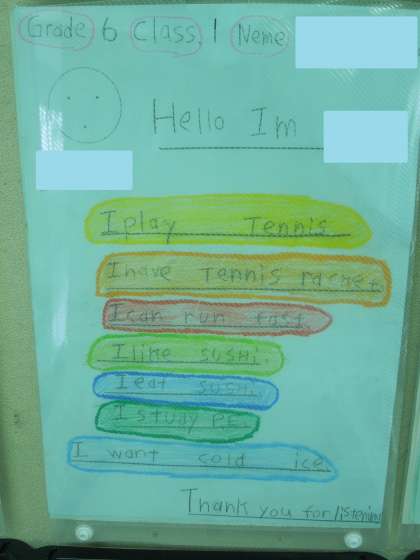 Grade 6 Class 1 Neme
Hello Im
I play Tennis
I have Tennis racket.
I can run fast.
I like SUSHi.
I eat SUSHi.
I study P.E.
I want cold ice.
Thank you for listening